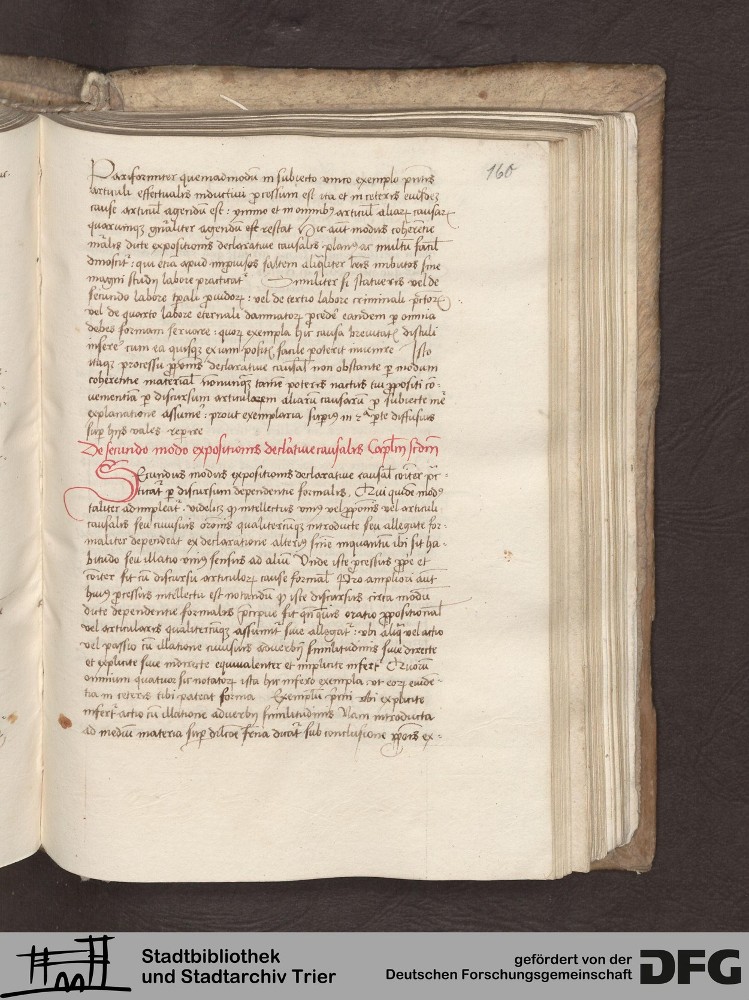 160
Pariformiter quemadmodū in subiecto vnico exemplo prius
articuli effectualis inductiui processum est ita et in ceteris eiusdē
cause articul agendū est : ymmo et in omnibꝰ articul aliarꝫ causarꝫ
quarumqꝫ gnāliter agendū est restat Hic aut modus coherētie
mālis dicte expositionis declaratiue causalis planꝰ ac multū facil
dinoscit : qui etiā apud impulsos saltem aliqliter
magni studij labore practicat Similiter si statueris vel de
secundo labore tpali : vel de tertio labore criminali
vel de quarto labore eternali damnatorꝫ eandem p omnia
debes formam seruare : quorꝫ exempla hic causa breuitatꝫ distuli
inserē cum ea quisqꝫ ex iam positꝫ facile poterit inuenire Isto
itaqꝫ processu declaratiue causal non obstante p modum
coherentie material nonnunqꝫ tantū poteris nactus tui ppositi cō-
uenientiā p discursum articularem aliarū causarū p subiecte mē
explanatione assumē : prout exemplaria suꝑius in 2ᵃ pte diffusius
suꝑ hijs vales reperire
De secundo modo expositionis declatiue causalis Capl'm scdm
Secundus modus expositionis declaratiue causal cōiter pc-
ticat p discursum dependentie formalis. Qui quidē modꝰ
taliter adimpleat videlicꝫ qꝫ intellectus vniꝰ vel articuli
causalis seu cuiusuis orōnis qualitercūqꝫ introducte seu allegate for-
maliter dependeat ex declaratione alteriꝰ sine inquantū ibi sit ha-
bitudo seu illatio vniꝰ sensus ad aliū Vnde iste pcessus ppe et
cōiter fit cū discursu articulorꝫ cause formal Pro ampliori aut
huiꝰ pcessus intellectu est notandū qꝫ iste discursus circa modū
dicte dependentie formalis pcipue fit qn quis oratio pposicional
vel articularis qualitercūqꝫ assumit siue allegat : vbi aliq vel actio
vel passio cū illatione cuiusuis aduerbij similitudinis siue directe
et explicite siue indirecte equiualenter et implicite infert Quorū
omnium quatuor sic notatorꝫ ista hic infero exempla : vt eorꝫ euidē-
tia in ceteris tibi pateat forma Exemplū primi vbi explicite
infert actio cū illatione aduerbij similitudinis Nam introducta
ad mediū materia suꝑ dicat sub conclusione ex-
Stadtbibliothek
und Stadtarchiv Trier
gefördert von der
Deutschen Forschungsgemeinschaft
DFG